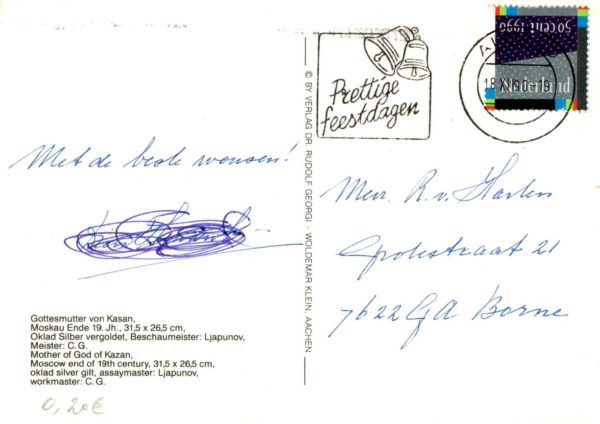 Prettige
feestdagen
50 cent 1990
Nederland
18 XII 90 - 19
Met de beste wensen!
Mevr. R. v. Harten
7622 GA Borne
© BY VERLAG DR. RUDOLF GEORGI · WOLDEMAR KLEIN, AACHEN
Gottesmutter von Kasan,
Moskau Ende 19. Jh., 31,5 x 26,5 cm,
Oklad Silber vergoldet, Beschaumeister: Ljapunov,
Meister: C. G.
Mother of God of Kazan,
Moscow end of 19th century, 31,5 x 26,5 cm,
oklad silver gilt, assaymaster: Ljapunov,
workmaster: C. G.
0,20€